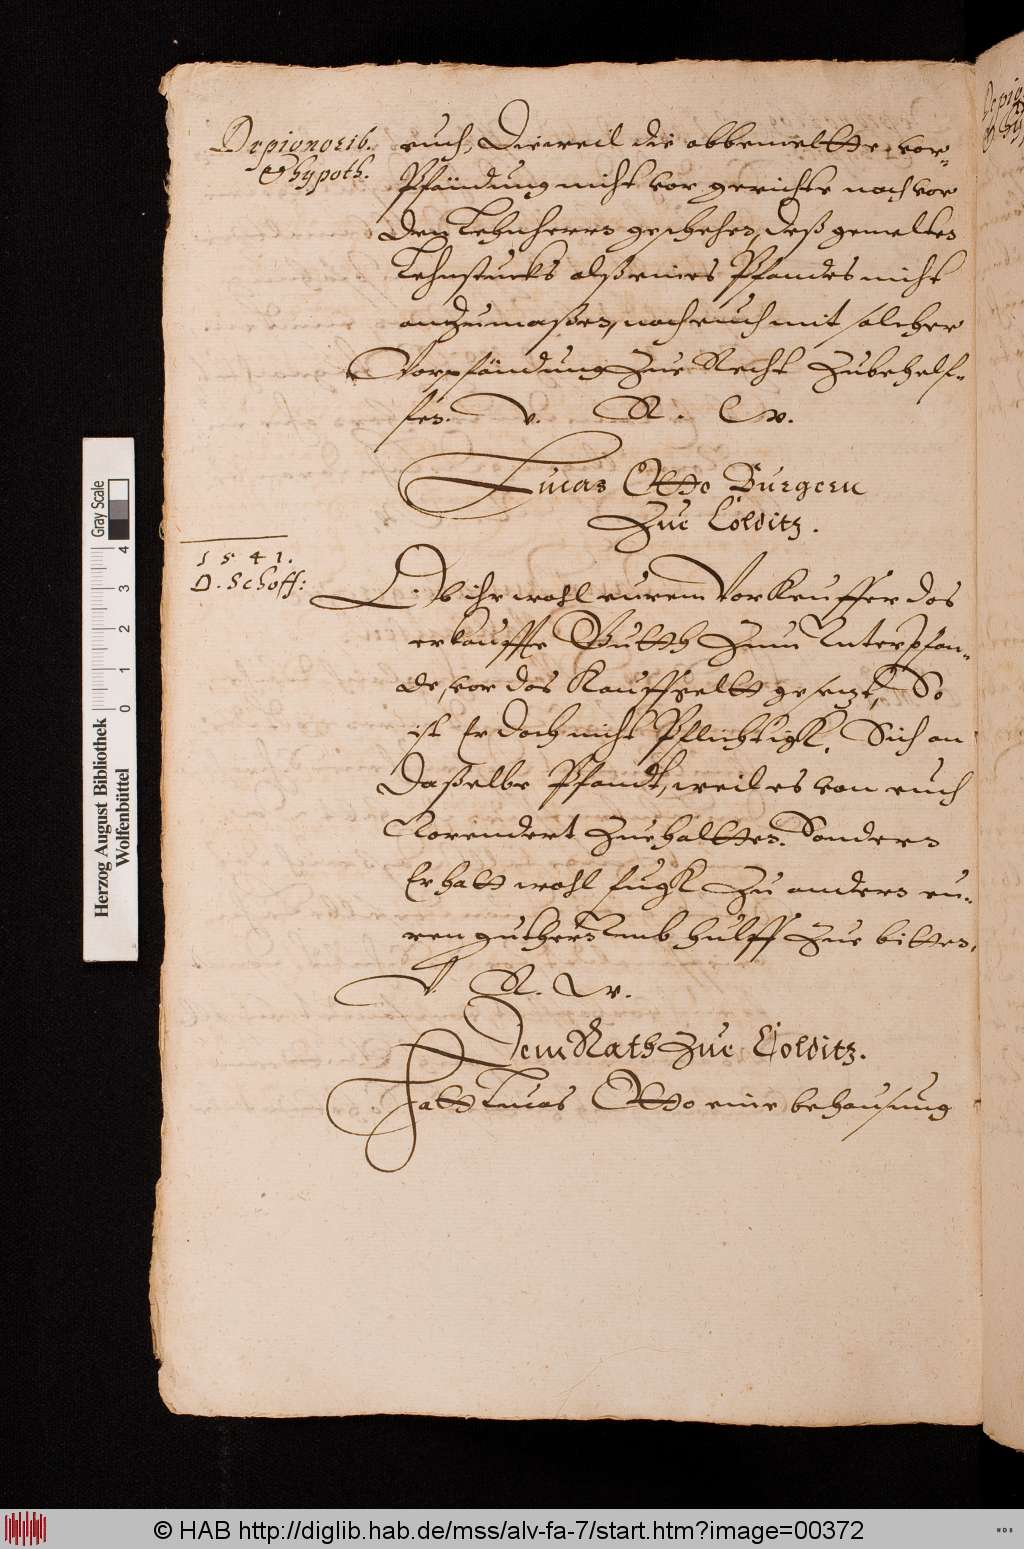 De pignorib.
& hypoth.
euch, Dieweil die obbemeltte vor-
Pfändung nicht vor gerichte noch vor
den Lehnherrn geschehen, deß gemelten
Lehnstucks alß eines Pfandes nicht
anzumaßen, noch euch mit solcher
Vorpfändung zue Recht zubehelf-
fen. V. R. W.
Lucas Otto Burgern
Zue Colditz.
1541.
D. Schoff:
Ob ihr wohl eurem Vorkeuffer das
erkauffte Gutth zum Unterpfan-
de, vor das Kauffgeltt gesezt, So
ist Er doch nicht Pflichtigk, Sich an
daßelbe Pfandt, weil es von euch
Vorendert zue haltten. Sondern
Er hatt wohl fugk zu andern eu-
ren guthern umb hulff zue bitten,
V. R. W.
Dem Rath zue Colditz.
Hatt Lucas Otto eine behausung
Gray Scale
0 1 2 3 4
Herzog August Bibliothek
Wolfenbüttel
© HAB http://diglib.hab.de/mss/alv-fa-7/start.htm?image=00372